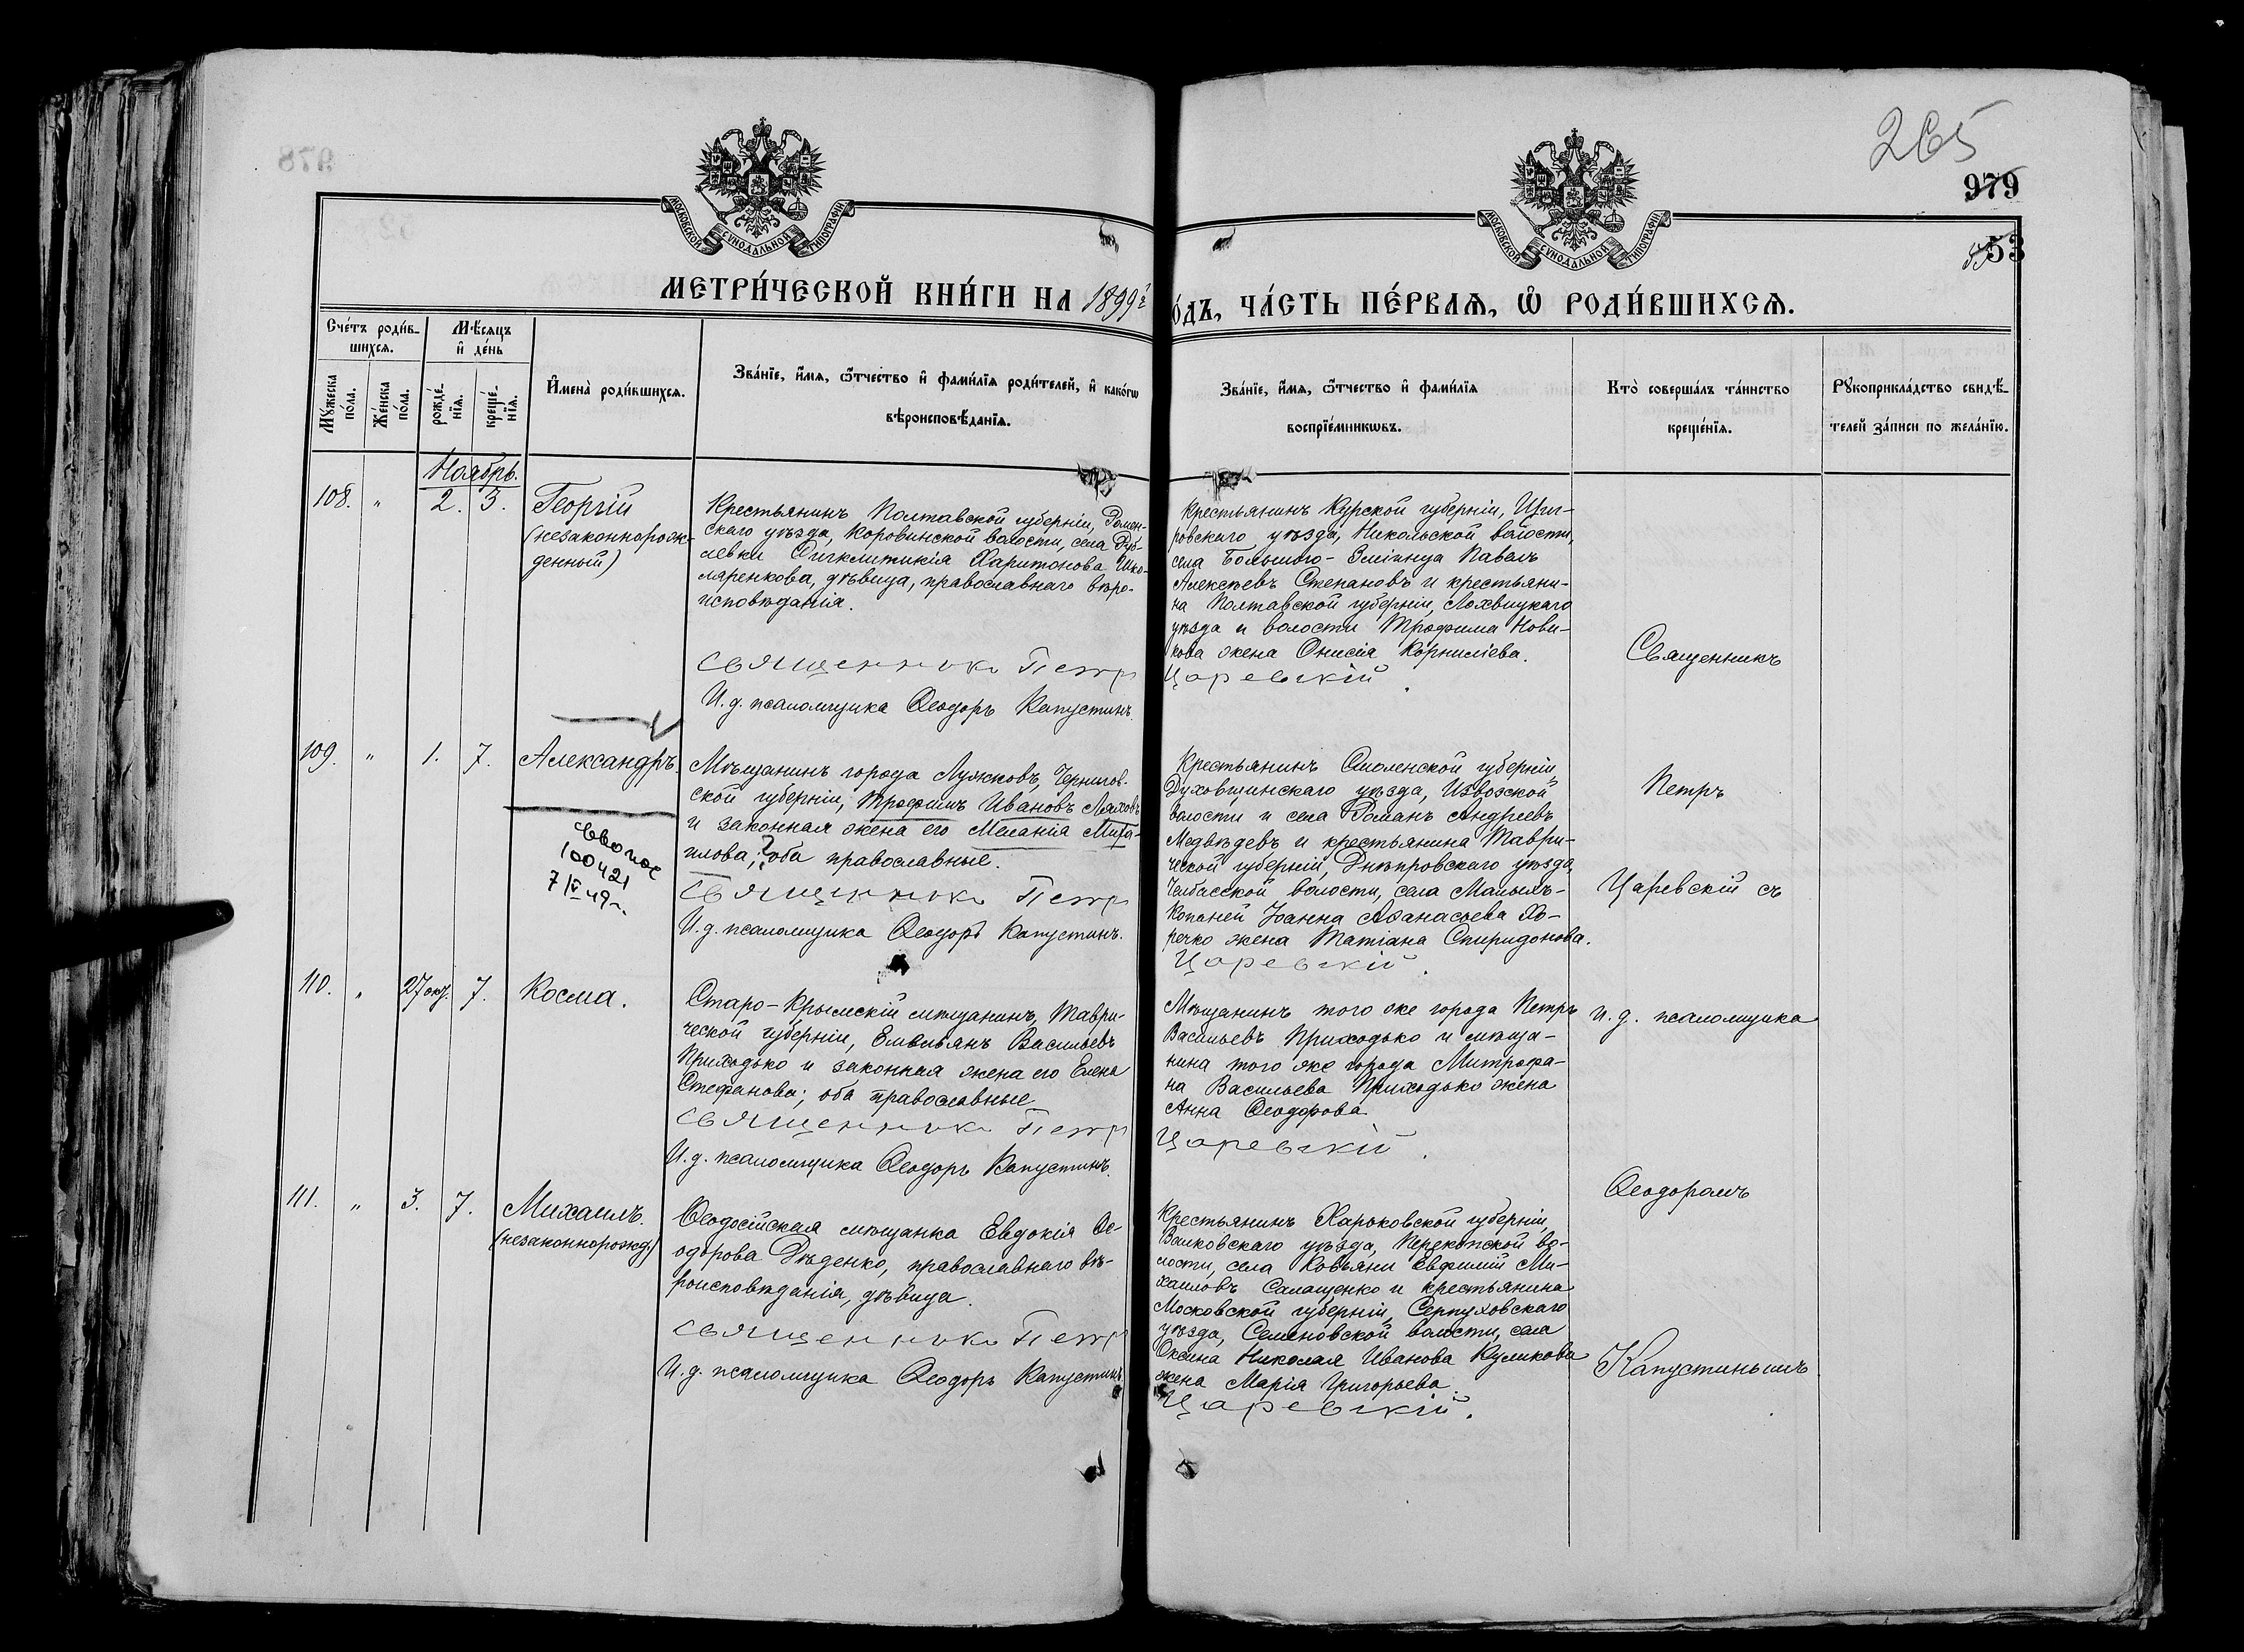 978
265
979
52
53
МОСКОВСКОЙ СѴНОДАЛЬНОЙ ТИПОГРАФІИ
МОСКОВСКОЙ СѴНОДАЛЬНОЙ ТИПОГРАФІИ
МЕТРИ́ЧЕСКОЙ КНИ́ГИ НА 1899 г
О́ДЪ, ЧА́СТЬ ПЕ́РВАЯ, Ѿ РОДИ́ВШИХСЯ.
Сче́тъ роди́в-
шихся.
Мѣ́сяцъ
и҆ де́нь
Му́жеска
по́ла.
Же́нска
по́ла.
рожде́-
нїя.
креще́-
нїя.
И҆мена̀ роди́вшихся.
Зва́нїе, и҆́мя, ѻ҆́тчество и҆ фами́лїя роди́телей, и҆ како́гѡ
вѣроисповѣ́данїя.
Зва́нїе, и҆́мя, ѻ҆́тчество и҆ фами́лїя
воспрїе́мникѡвъ.
Кто̀ соверша́лъ та́инство
креще́нїя.
Рꙋкоприкла́дство свидѣ́-
телей за́писи по жела́нїю.
Ноябрь.
108. " 2. 3.
Георгій
(незаконнорож-
денный)
Крестьянинъ Полтавской губерніи, Ромен-
скаго уѣзда, Коровинской волости, села Дуб-
левки Харитонова Шко-
ляренкова, дѣвица, православнаго вѣро-
исповѣданія.
Священникъ Петръ
И. д. псаломщика Ѳеодоръ Капустинъ.
Крестьянинъ Курской губерніи, Щиг-
ровскаго уѣзда, Никольской волости,
села Большого-Зміинца Павелъ
Алексѣевъ Степановъ и крестьяни-
на Полтавской губерніи, Лохвицкаго
уѣзда и волости Трофима Нови-
кова жена Онисія Корниліева.
Царевскій.
109. " 1. 7.
Александръ.
Мѣщанинъ города Лужковъ, Чернигов-
ской губерніи, Трофимъ Ивановъ Ляховъ
и законная жена его Меланія Миха-
илова; оба православные.
Священникъ Петръ
И. д. псаломщика Ѳеодоръ Капустинъ.
100421
7/V 49 г.
Крестьянинъ Смоленской губерніи,
Духовщинскаго уѣзда, Извозской
волости и села Романъ Андреевъ
Медвѣдевъ и крестьянина Таври-
ческой губерніи, Днѣпровскаго уѣзда,
Челбасской волости, села Малыхъ-
Копаней Іоанна Аѳанасьева Хо-
речко жена Татіана Спиридонова.
Царевскій.
110. " 27 окт. 7.
Косма.
Старо-Крымскій мѣщанинъ, Таври-
ческой губерніи, Емельянъ Васильевъ
Приходько и законная жена его Елена
Стефанова; оба православные
Священникъ Петръ
И. д. псаломщика Ѳеодоръ Капустинъ.
Мѣщанинъ того же города Петръ
Васильевъ Приходько и мѣща-
нина того же города Митрофа-
на Васильева Приходько жена
Анна Ѳеодорова.
Царевскій.
111. " 3. 7.
Михаилъ.
(незаконнорожд.)
Ѳеодосійская мѣщанка Евдокія Ѳе-
одорова Дѣденко, православнаго вѣ-
роисповѣданія, дѣвица.
Священникъ Петръ
И. д. псаломщика Ѳеодоръ Капустинъ.
Крестьянинъ Харьковской губерніи,
Валковскаго уѣзда, Перекопской во-
лости, села Ковьяги Евфимій Ми-
хаиловъ Салащенко и крестьянина
Московской губерніи, Серпуховскаго
уѣзда, Семеновской волости, села
Оксина Николая Иванова Куликова
жена Марія Григорьева.
Царевскій.
Священникъ
Петръ
Царевскій съ
и. д. псаломщика
Ѳеодоромъ
Капустинымъ